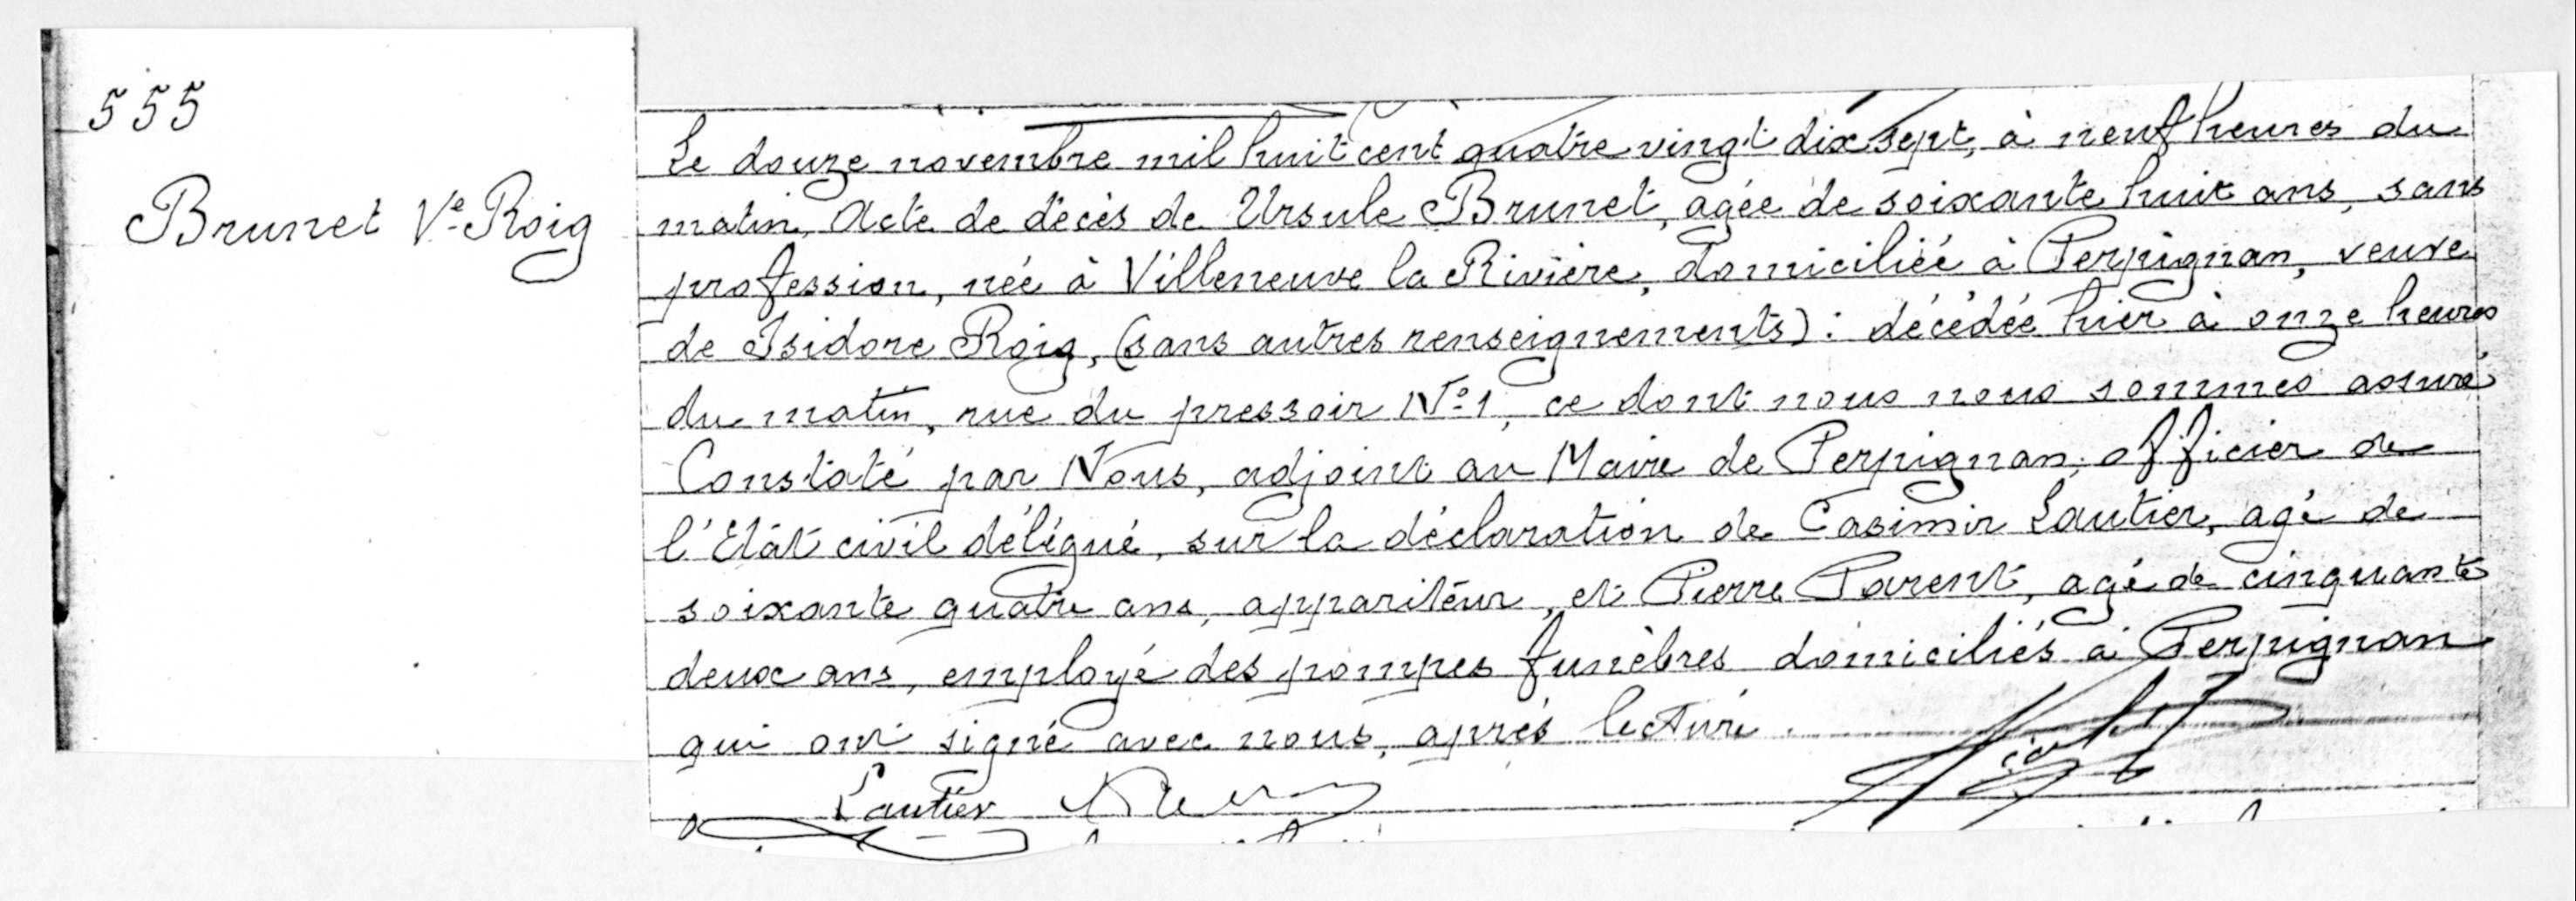 555
Brunet Ve Roig
Le douze novembre mil huit cent quatre vingt dix sept, à neuf heures du
matin, Acte de décès de Ursule Brunet, agée de soixante huit ans, sans
profession, née à Villeneuve la Rivière, domiciliée à Perpignan, veuve
de Isidore Roig, (sans autres renseignements) : décédée hier à onze heures
du matin, rue du pressoir No 1, ce dont nous nous sommes assuré
Constaté par Nous, adjoint au Maire de Perpignan, officier de
l'Etat civil délégué, sur la déclaration de Casimir Lautier, agé de
soixante quatre ans, appariteur, et Pierre Parent, agé de cinquante
deux ans, employé des pompes funèbres domiciliés à Perpignan
qui ont signé avec nous, après lecture.
Lautier